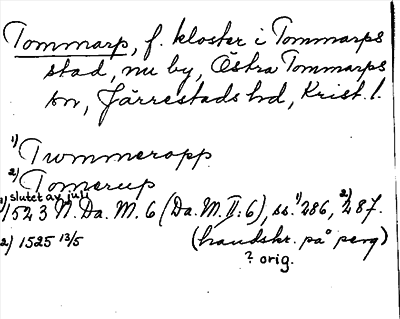 Tommarp, f. kloster i Tommarps
stad, nu by, Östra Tommarps
sn, Järrestads hd, Krist. l.
1) Tummeropp
2) Tomerup
slutet av juli
1) 1523 N. Da. M. 6 (Da. M. II: 6), ss. 1) 286, 2) 287.
2) 1525 13/5 (handskr. på perg)
? orig.